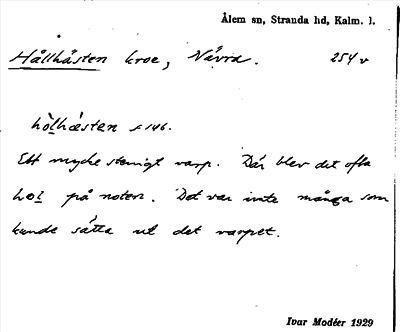 Ålem sn, Stranda hd, Kalm. l.
Hållhästen kroe, Nävra. 254 v
hòlhæsten f 146.
Ett mycke stenigt varp. Där blev det ofta
hol på noten. Det var inte många som
kunde sätta ut det varpet.
Ivar Modéer 1929